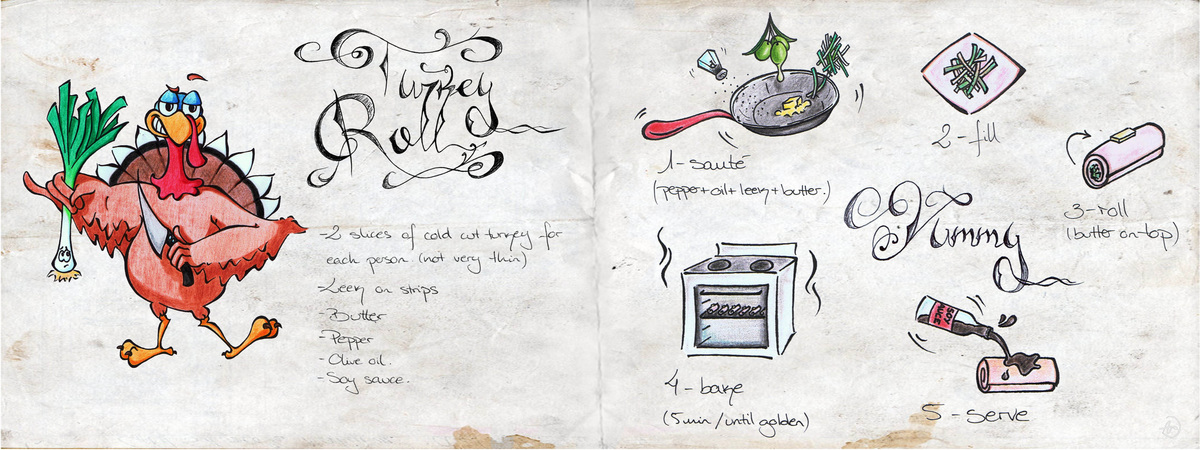 Turkey
Roll
-2 slices of cold cut turkey for
each person (not very thin)
-Leek on strips
-Butter
-Pepper
-Olive oil.
-Soy sauce.
1-sauté
(pepper+oil+leek+butter.)
2-fill
3-roll
(butter on-top)
Yummy
4-bake
(5min/until golden)
SOY
SAUCE
5-serve